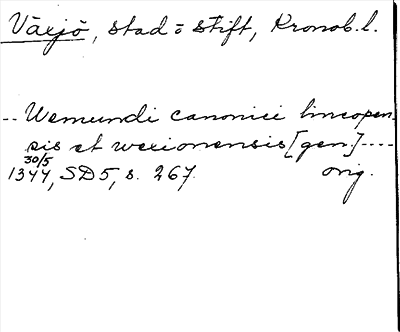 Växjö, stad o stift, Kronob. l.
-- Wemundi canonici lincopen-
sis et wexionensis [gen.] ----
30/5
1344, SD5, s. 267. orig.